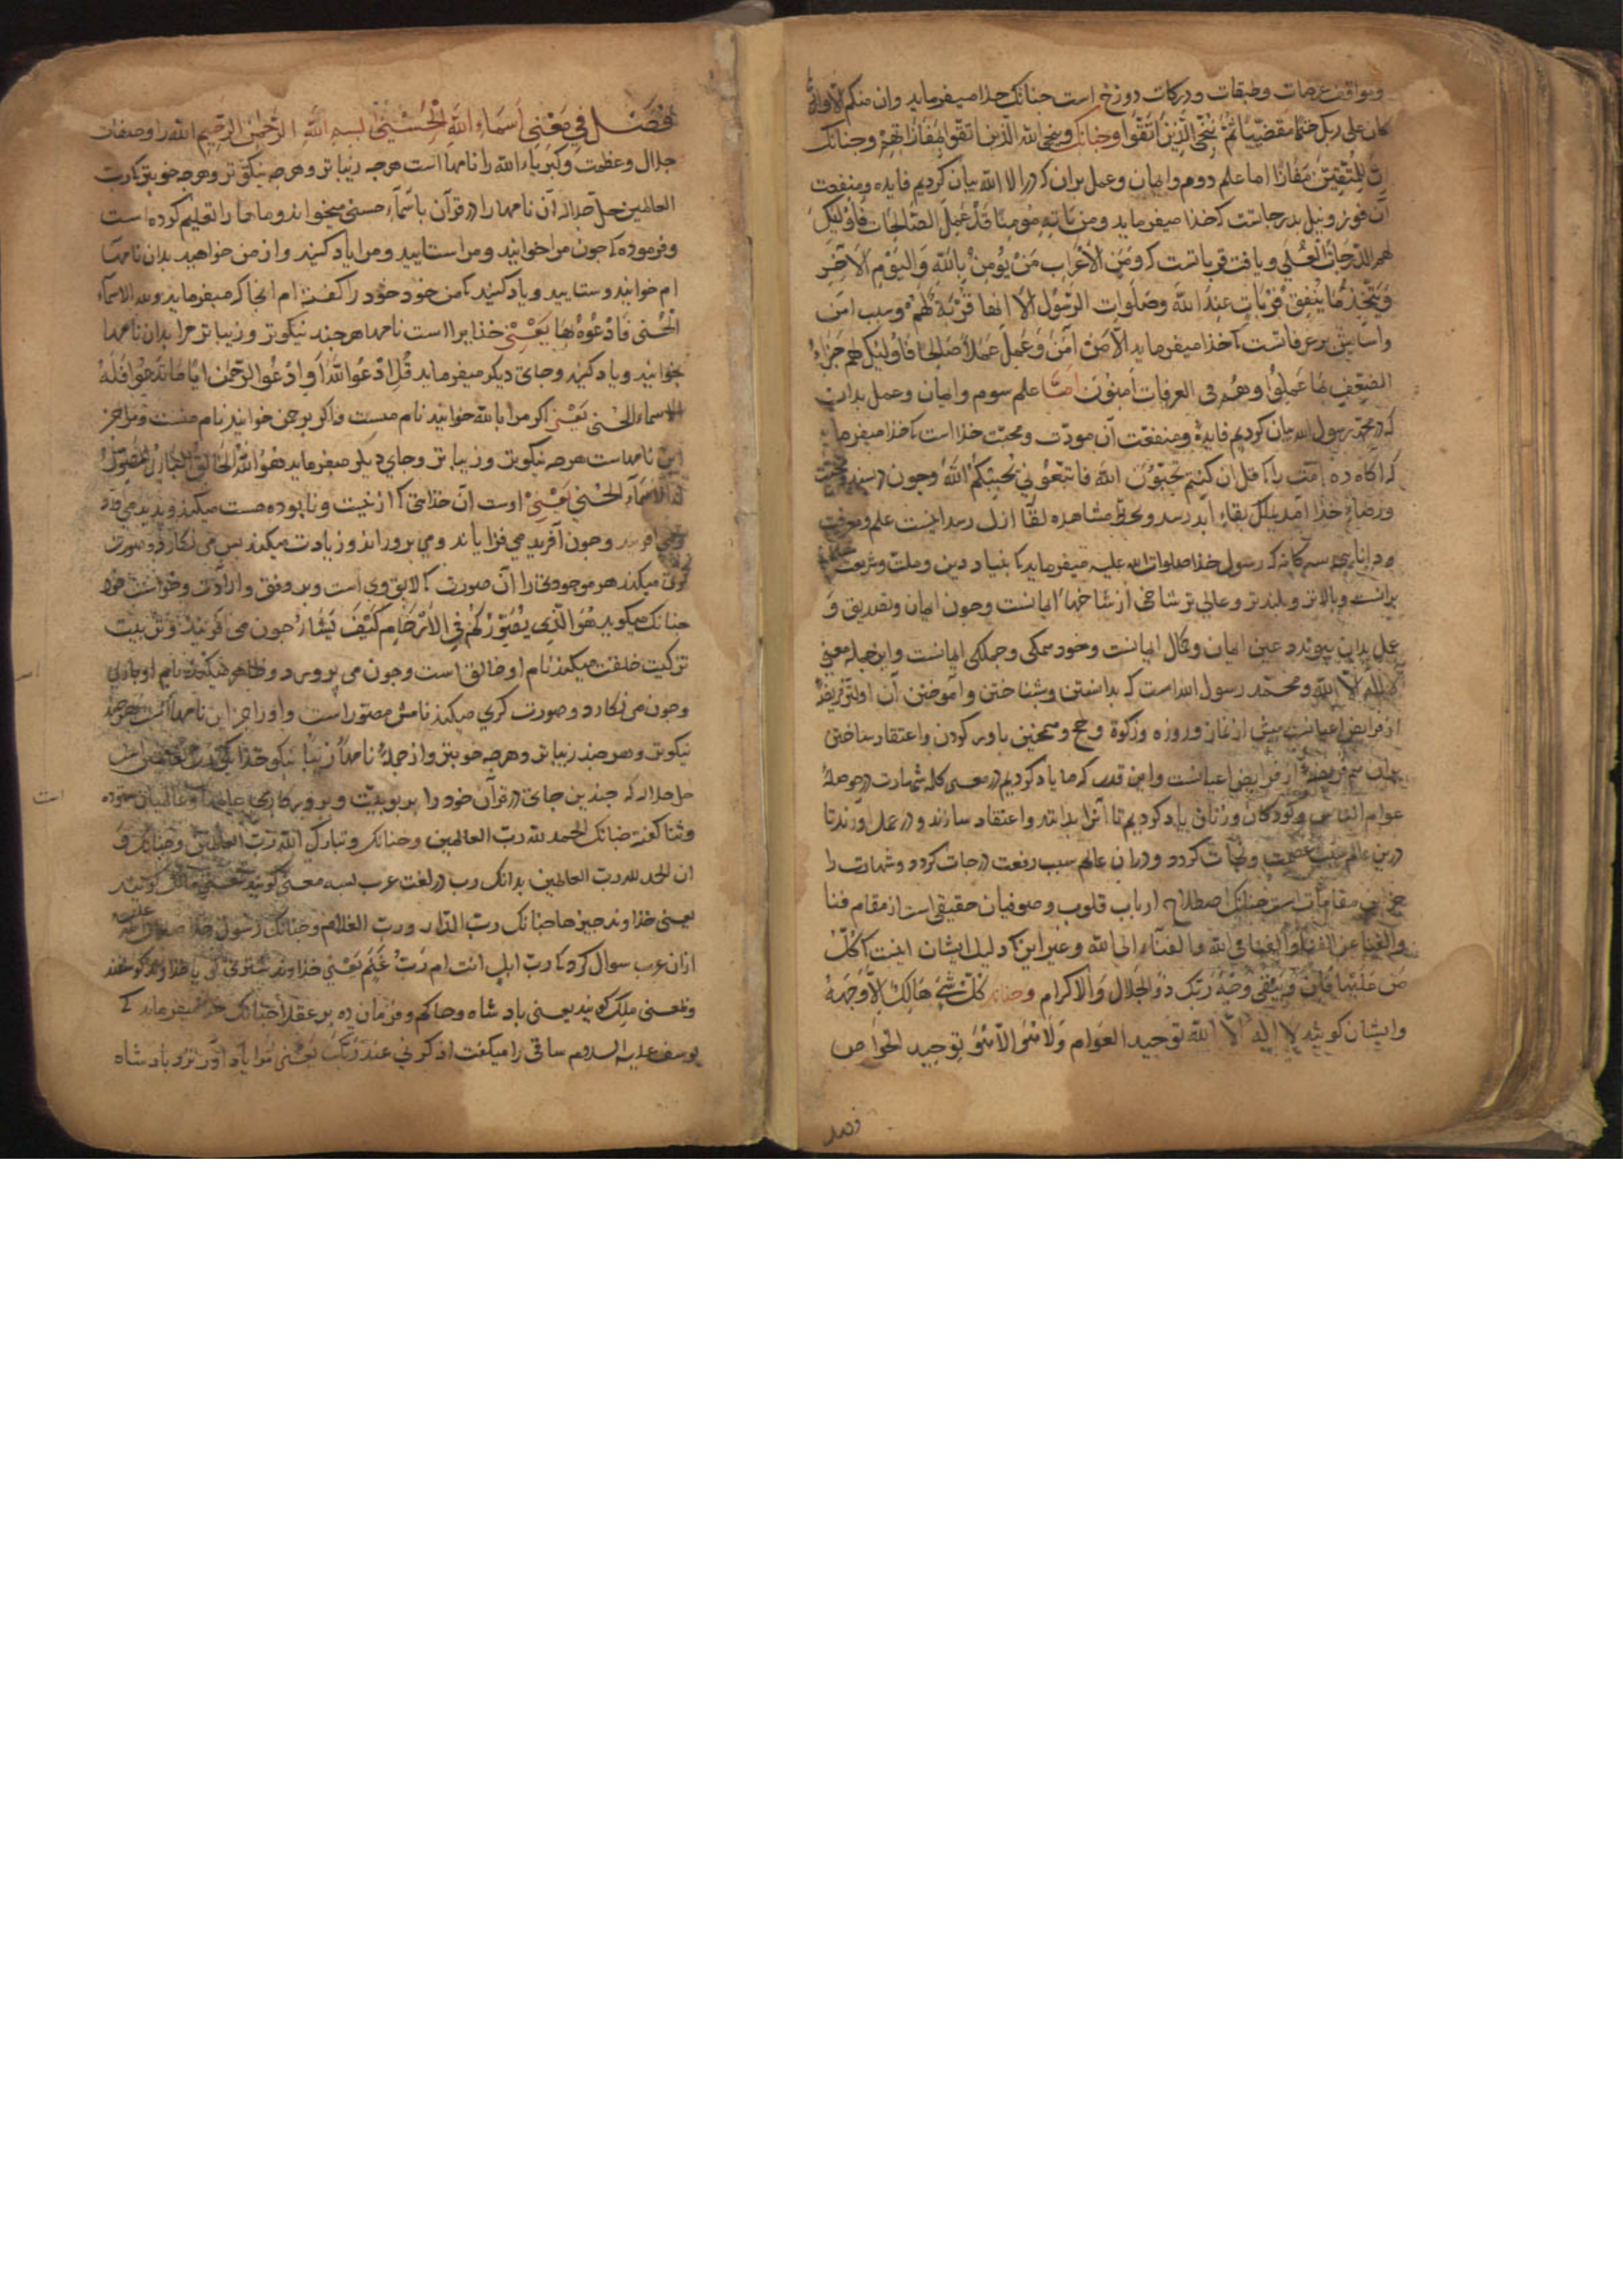 ومواقف عرصات وطبقات ودرکات دوزخ است جنانک خدا میفرماید وان منکم الا واردها
کان علی ربک حتما مقضیا ثم ننجی الذین اتقوا وجنانک وینجی الله الذین اتقوا بمفازتهم وجنانک
ان للمتقین مفازا اما علم دوم وایمان وعمل بران که در الا الله بیان کردیم فایده ومنفعت
آن فوز ونیل بدرجاتست که خدا میفرماید ومن یاته مؤمنا قد عمل الصالحات فاولئک
لهم الدرجات العلی ویافت قرباتست که ومن الاعراب من یؤمن بالله والیوم الاخر
ویتخذ ما ینفق قربات عند الله وصلوات الرسول الا انها قربة لهم وسبب امن
واسایش برعرفاتست که خدا میفرماید الا من امن وعمل عملا صالحا فاولئک لهم جزاء
الضعف بما عملوا وهم فی الغرفات امنون اما علم سوم وایمان وعمل بدان
که در محمد رسول الله بیان کردیم فایده ومنفعت آن مودت ومحبت خدا است که خدا میفرماید
که اکاه ده امت را که قل ان کنتم تحبون الله فاتبعونی یحببکم الله وجون در سند محبت
ورضاء خدا آمد بملک بقاء ابد رسد وبحظ مشاهده لقا ازل رسد اینست علم ومعرفت
ودانایی سه کانه که رسول خدا صلوات الله علیه میفرماید که بنیاد دین وملت وشریعت
برانست وبالاتر وبلندتر وعالی تر شاخی از شاخهاء ایمانست وجون ایمان وتصدیق و
عمل بدان پیوندد عین ایمان وکمال ایمانست وخود همکی وجملکی ایمانست واین جمله معنی
لا اله الا الله ومحمد رسول الله است که بدانستن وشناختن وآموختن آن اولتر فریضه
از فرایض اعیانست پیش از نماز وروزه وزکوة وحج وهمچنین باور کردن واعتقاد ساختن
بدان هم فریضه از فرایض اعیانست واین قدر که ما یاد کردیم در معنی کلمه شهادت در حوصله
عوام الناس وکودکان وزنان یاد کردیم تا آنرا بدانند واعتقاد سازند ودر عمل آورند تا
درین عالم سبب عصمت ونجات کردد ودران عالم سبب رفعت درجات کردد وشهادت را
جز این مقامات است جنانک اصطلاح ارباب قلوب وصوفیان حقیقی است از مقام فنا
والفنا عن الفنا والفنا فی الله والفناء الی الله وغیر این که دلیل ایشان اینست که کل
من علیها فان ویبقی وجه ربک ذو الجلال والاکرام وجنانک کل شئ هالک الا وجهه
وایشان کویند لا اله الا الله توحید العوام ولا هو الا هو توحید الخواص
فصل
فصل فی معنی اسماء الله الحسنی بسم الله الرحمن الرحیم الله را وصفات
جلال وعظمت وکبریاء الله را نامها است هرجه زیباتر وهرجه نیکوتر وهرجه خوبتر که رب
العالمین جل جلاله آن نامها را در قرآن باسماء حسنی میخواند وما را تعلیم کرده است
وفرموده که جون مرا خوانید ومرا ستایید ومرا یاد کنید واز من خواهید بدان نامها
ام خوانید وستایید ویاد کنید که من خود خود را کفته ام انجا که میفرماید ولله الاسماء
الحسنی فادعوه بها یعنی خدایرا است نامها هرجند نیکوتر وزیباتر مرا بدان نامها
بخوانید ویاد کنید وجای دیکر میفرماید قل ادعوا الله او ادعوا الرحمن ایا ما تدعوا فله
الاسماء الحسنی یعنی اکر مرا بالله خوانید نام منست واکر برحمن خوانید نام منست ومرا جز
این نامهاست هرجه نیکوتر وزیباتر وجای دیکر میفرماید هو الله الخالق الباری المصور
له الاسماء الحسنی یعنی اوست آن خدائی که از نیست ونابوده هست میکند وپدید می آرد
ومی آفریند وجون آفرید می فزایاند ومی پروراند وزیادت میکند پس می نکارد وصورت
کری میکند هر موجودی را آن صورت که لایق وی است وبر وفق وارادت وخواست خود
جنانک میکوید هو الذی یصورکم فی الارحام کیف یشاء جون می آفریند وترتیب
ترکیب خلقت میکند نام او خالق است وجون می پرورد وظاهر میکند نام او باری
وجون می نکارد وصورت کری میکند نامش مصور است واورا جز این نامها است هرجند
نیکوتر وهرجند زیباتر وهرجه خوبتر واز جمله نامها زیبا نیکو خدا یکی رب العالمین است
جل جلاله که جندین جای در قرآن خود را بربوبیت وپروردکاری عالمها وعالمیان ستوده
وثنا کفته جنانک الحمد لله رب العالمین وجنانک وتبارک الله رب العالمین وجنانک و
ان الحمد لله رب العالمین بدانک رب در لغت عرب بسه معنی کویند بمعنی مالک کویند
یعنی خداوند جیزها جنانک رب الدار ورب الغلام وجنانک رسول خدا صلوات الله علیه
ازان عرب سوال کرد که رب ابل انت ام رب غنم یعنی خداوند شتر هی یا خداوند کوسفند
وبمعنی ملک کویند یعنی باد شاه وحاکم وفرمان ده بر عقلا جنانک خدا میفرماید که
یوسف علیه السلام ساقی را میکفت اذکرنی عند ربک یعنی مرا یاد آور نزد باد شاه